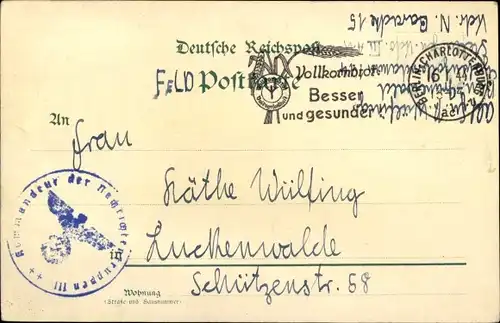 Deutsche Reichspost
FELD Postkarte
Vollkornbrot
Besser
und gesunder
BERLIN-CHARLOTTENBURG
An
Frau
Käthe Wülfing
in Luckenwalde
Schützenstr. 68
Wohnung
(Straße und Hausnummer)
Kommandeur der Nachrichtentruppen III
Baracke 15